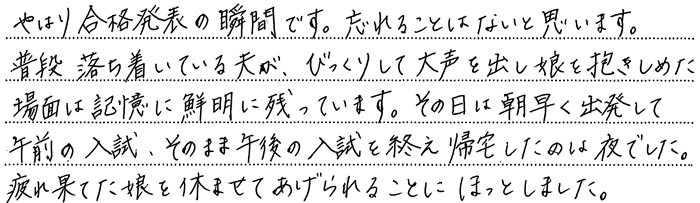 やはり合格発表の瞬間です。忘れることはないと思います。
普段落ち着いている夫が、びっくりして大声を出し娘を抱きしめた
場面は記憶に鮮明に残っています。その日は朝早く出発して
午前の入試、そのまま午後の入試を終え帰宅したのは夜でした。
疲れ果てた娘を休ませてあげられることにほっとしました。